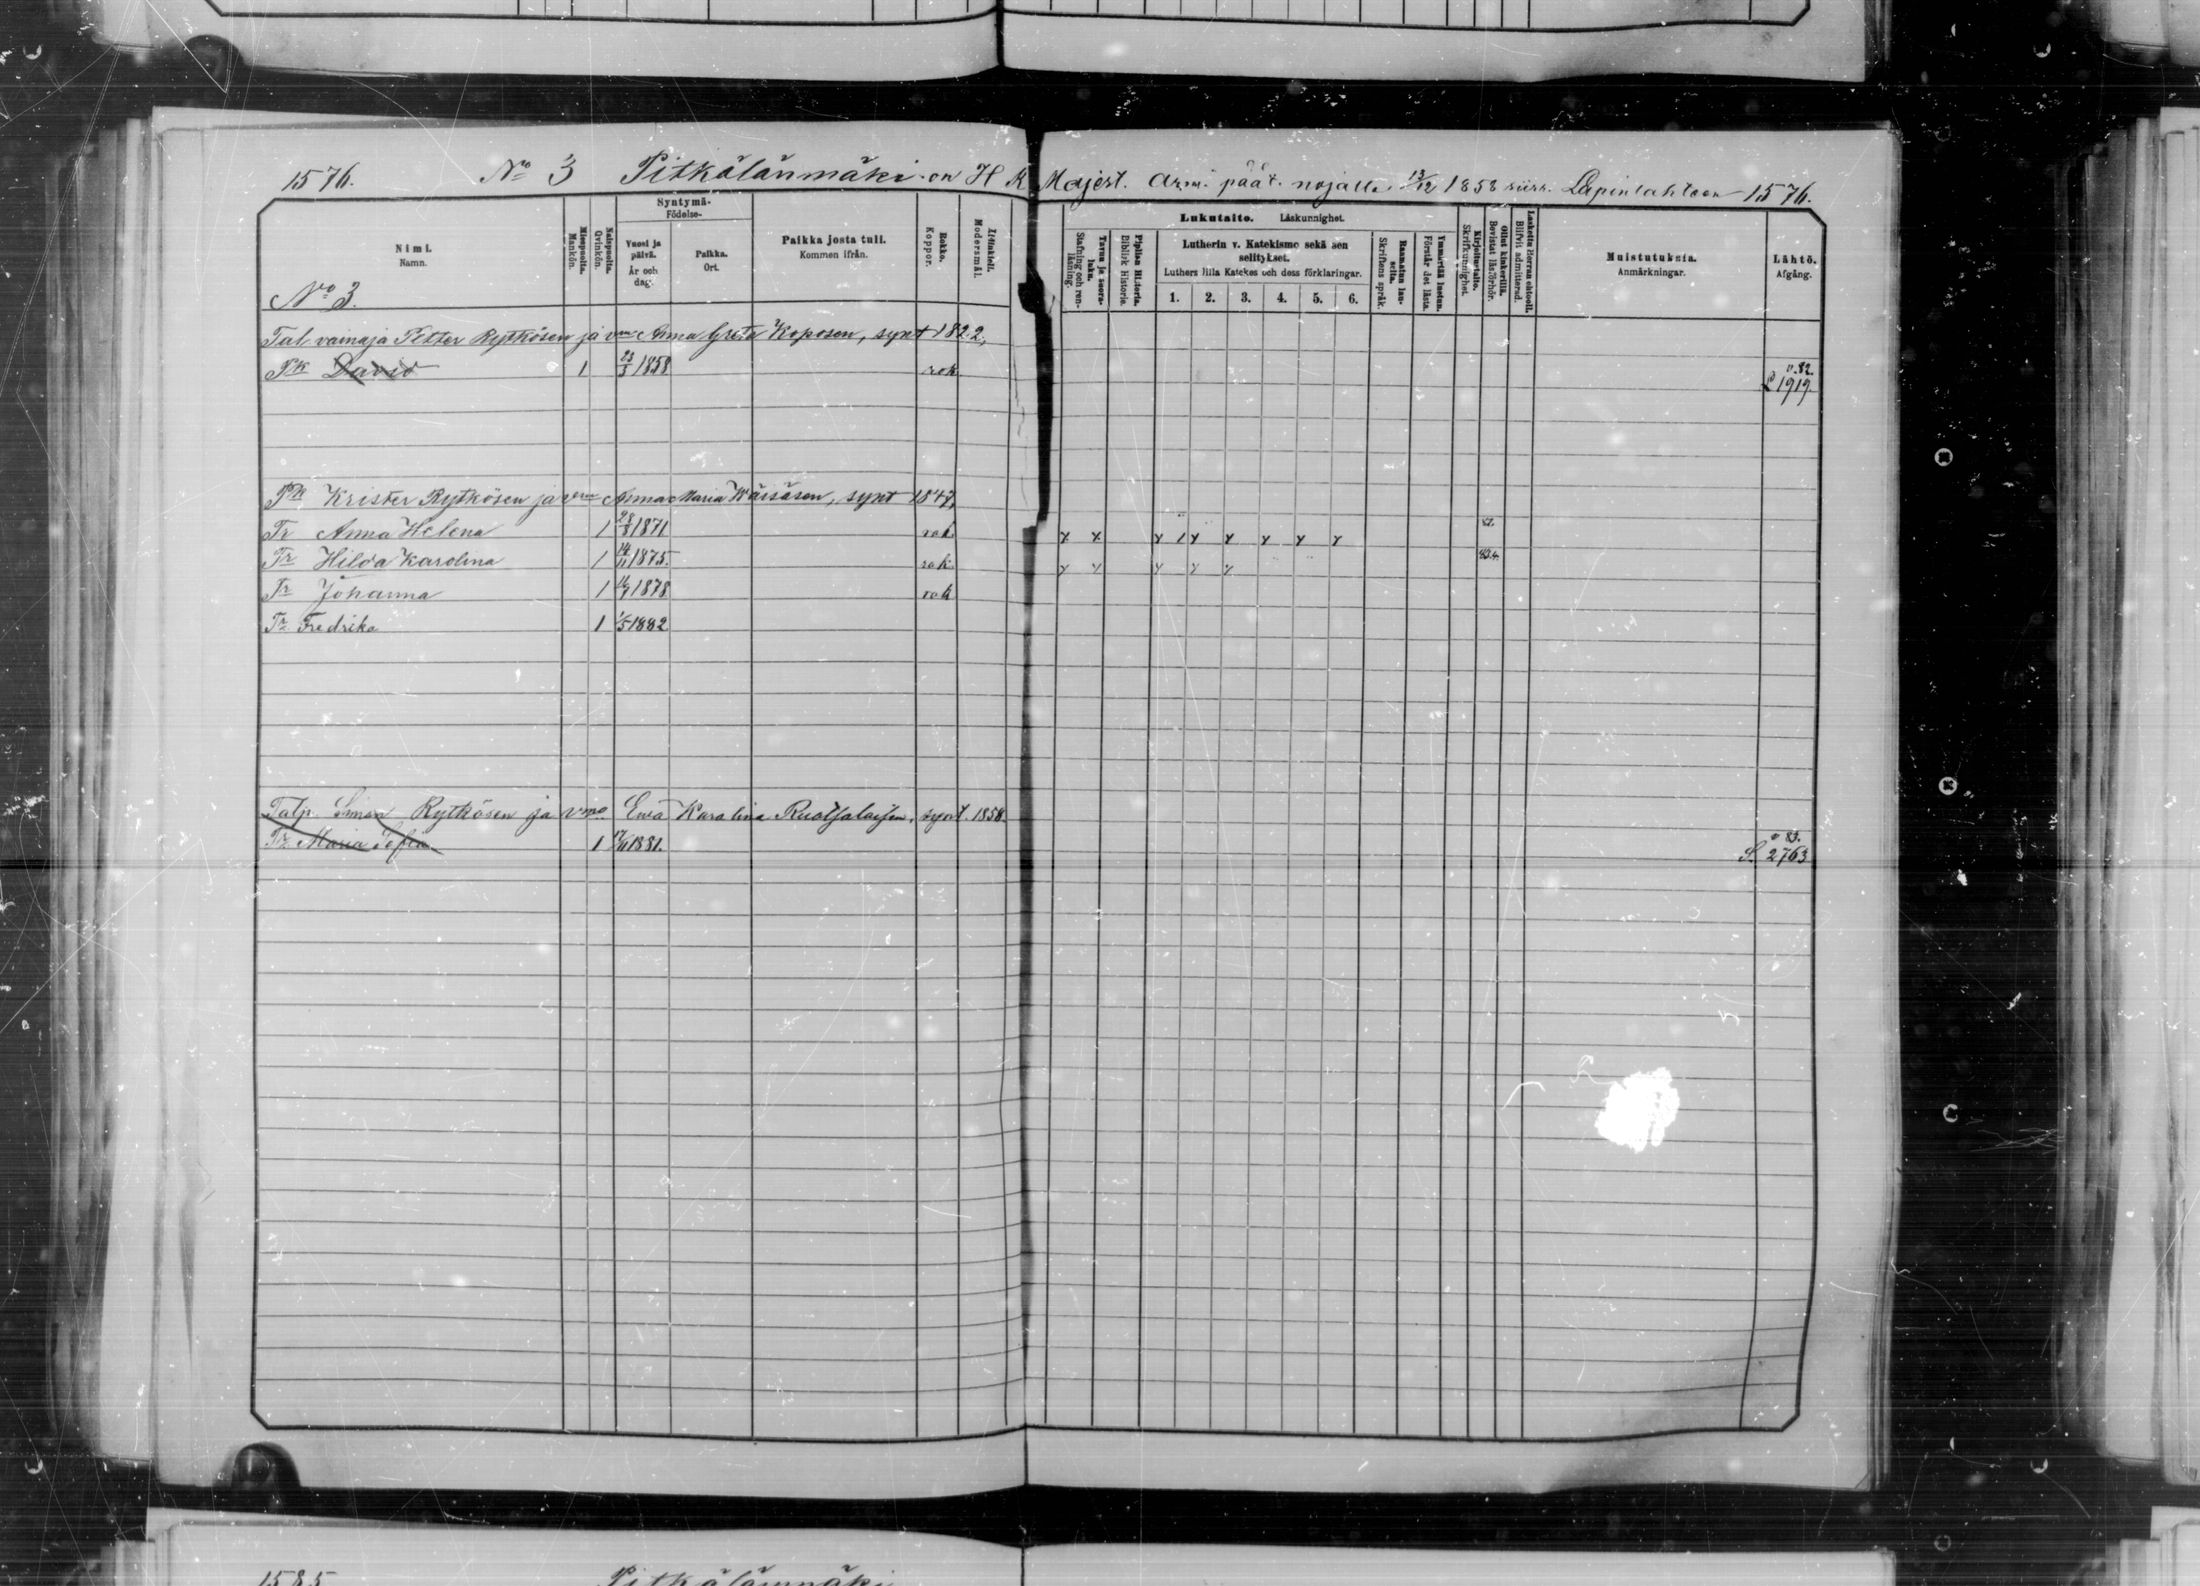 1576. No 3 Pitkälänmäki on H K Majest. Arm. päät. nojalla 13/12 1858 siirr. Lapinlahteen 1576.
Nimi.
Namn.
Miespuolia.
Mankön.
Naispuolia.
Qvinkön.
Syntymä-
Födelse-
Vuosi ja
päivä.
År och
dag.
Paikka.
Ort.
Paikka josta tuli.
Kommen ifrån.
Rokko.
Koppor.
Äitinkieli.
Modersmål.
Tavuu ja sisä-
luku.
Stafning och ren-
läsning.
Piplian Historia.
Biblisk Historie.
Lukutaito. Läskunnighet.
Lutherin v. Katekismo sekä sen
selitykset.
Luthers lilla Katekes och dess förklaringar.
1. 2. 3. 4. 5. 6.
Raamatun lau-
seita.
Skriftens språk.
Ymmärtää luetun.
Förstår det lästa.
Kirjoitustaito.
Skrifkunnighet.
Ollut kinkerillä.
Bevistat läsförhör.
Laskettu Herran ehtoolle.
Blifvit admitterad.
Muistutuksia.
Anmärkningar.
Lähtö.
Afgång.
No 3.
Tal. vainaja Petter Rytkösen ja vmo Anna Greta Koposen, synt 1822,
Pk David 1 23/3 1858 rok v. 82. L 1919.
Pk Krister Rytkösen ja vmo Anna Maria Wäisäsen, synt 1547,
Tr Anna Helena 1 28/8 1871 rok
Tr Hilda Karolina 1 14/11 1875. rok
Tr Johanna 1 1878 rok
Tr Fredrika 1 1/5 1882
Talp. Simon Rytkösen ja vmo. Ewa Karolina Ruotsalaisen, synt. 1858.
Tr Maria Sofia 1 17/11 1881. v 83. S. 2763
1585 Pitkälänmäki